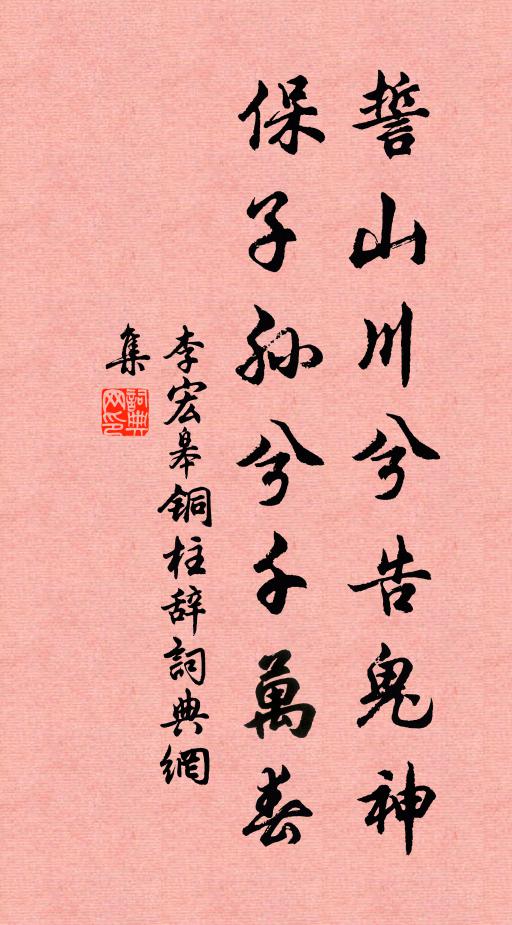 誓山川兮告鬼神
保子孙兮千萬春
李宏皋铜柱辞詞典網
集
詞典网印